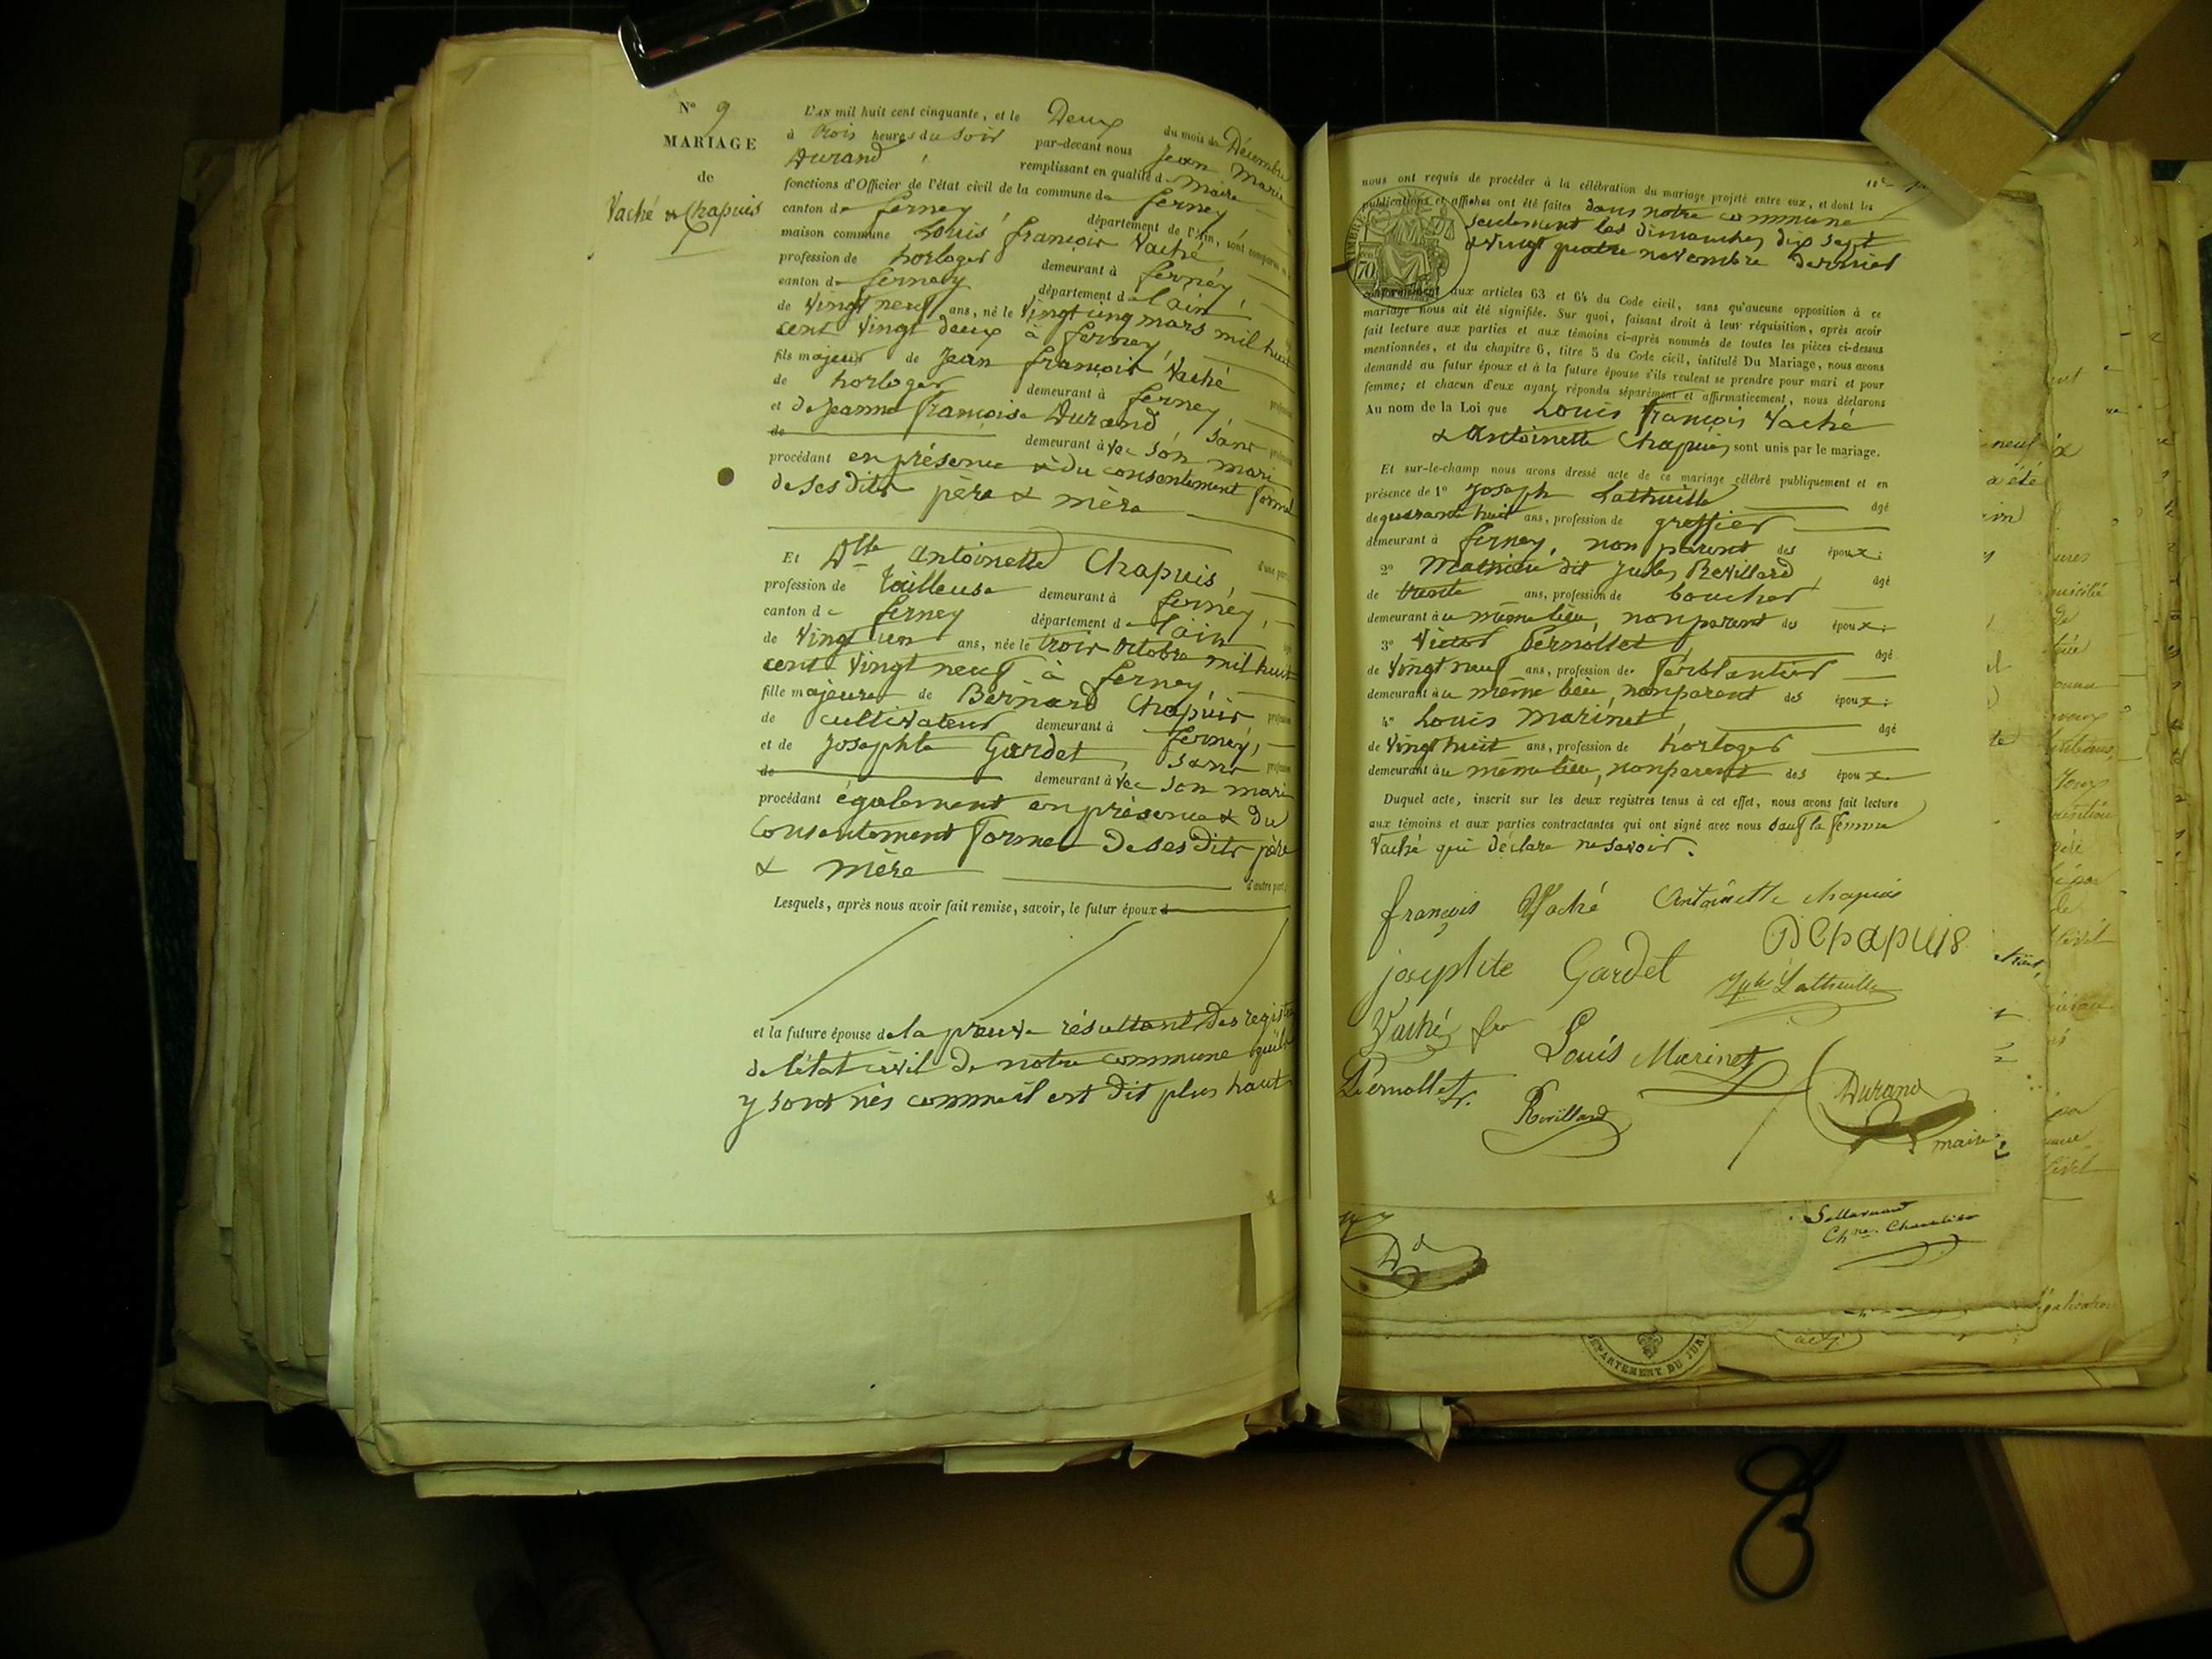 N° 9
MARIAGE
de
Vaché & Chapuis
L'an mil huit cent cinquante, et le Deux du mois de Décembre
à trois heures du soir par-devant nous Jean Marie
Durand remplissant en qualité de Maire
fonctions d'Officier de l'état civil de la commune de ferney
canton de ferney, département de l'Ain, sont comparus
maison commune Louis françois Vaché
profession de horloger demeurant à ferney,
canton de ferney département de l'ain,
de vingt neuf ans, né le vingt ung mars mil huit
cent vingt deux à ferney,
fils majeur de Jean françois Vaché
de horloger demeurant à ferney,
et de Jeanne françoise Durand, sans
de demeurant avec son mari
procédant en présence & du consentement formel
de ses dits père & mère
d'une part,
Et Dlle antoinette Chapuis,
profession de tailleuse demeurant à ferney,
canton de ferney département de l'ain
de vingt un ans, née le trois octobre mil huit
cent vingt neuf à ferney,
fille majeure de Bernard Chapuis
de cultivateur demeurant à ferney,
et de Josephte Gardet, sans
de demeurant avec son mari
procédant également en présence & du
consentement formel de ses dits père
& mère d'autre part;
Lesquels, après nous avoir fait remise, savoir, le futur époux d
et la future épouse de la preuve résultant des registres
de l'état civil de notre commune qu'ils
y sont nés comme il est dit plus haut
nous ont requis de procéder à la célébration du mariage projeté entre eux, et dont les
publications et affiches ont été faites dans notre commune
seulement les dimanches dix sept
& vingt quatre novembre dernier
TIMBRE
70
conformément aux articles 63 et 64 du Code civil, sans qu'aucune opposition à ce
mariage nous ait été signifiée. Sur quoi, faisant droit à leur réquisition, après avoir
fait lecture aux parties et aux témoins ci-après nommés de toutes les pièces ci-dessus
mentionnées, et du chapitre 6, titre 5 du Code civil, intitulé Du Mariage, nous avons
demandé au futur époux et à la future épouse s'ils veulent se prendre pour mari et pour
femme; et chacun d'eux ayant répondu séparément et affirmativement, nous déclarons
Au nom de la Loi que Louis françois Vaché
& Antoinette Chapuis, sont unis par le mariage.
Et sur-le-champ nous avons dressé acte de ce mariage célébré publiquement et en
présence de 1° Joseph Lathuille âgé
de quarante huit ans, profession de greffier
demeurant à ferney, non parent des époux;
2° Mathieu dit Jules Revillard âgé
de trente ans, profession de boucher
demeurant au même lieu, non parent des époux;
3° Victor Pernollet âgé
de vingt neuf ans, profession de ferblantier
demeurant au même lieu, non parent des époux;
4° Louis Marinet âgé
de vingt huit ans, profession de horloger
demeurant au même lieu, non parent des époux
Duquel acte, inscrit sur les deux registres tenus à cet effet, nous avons fait lecture
aux témoins et aux parties contractantes qui ont signé avec nous sauf la femme
Vaché qui déclare ne savoir.
françois Vaché Antoinette chapuis
D Chapuis
josephte Gardet Jph Lathuille
Vaché fu
Louis Marinet
Pernollet V. Durand
Revillard
maire
Dd
DÉPARTEMENT DU JURA